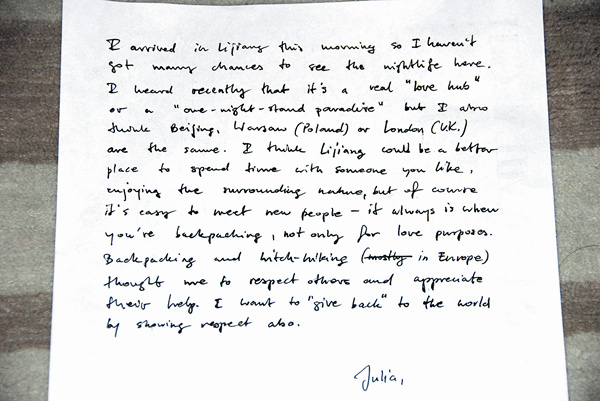 I arrived in Lijiang this morning so I haven't
got many chances to see the nightlife here.
I heard recently that it's a real "love hub"
or a "one-night-stand paradise" but I also
think Beijing, Warsaw (Poland) or London (U.K.)
are the same. I think Lijiang could be a better
place to spend time with someone you like,
enjoying the surrounding nature, but of course
it's easy to meet new people – it always is when
you're backpacking, not only for love purposes.
Backpacking and hitch-hiking (mostly in Europe)
thought me to respect others and appreciate
their help. I want to "give back" to the world
by showing respect also.
Julia,